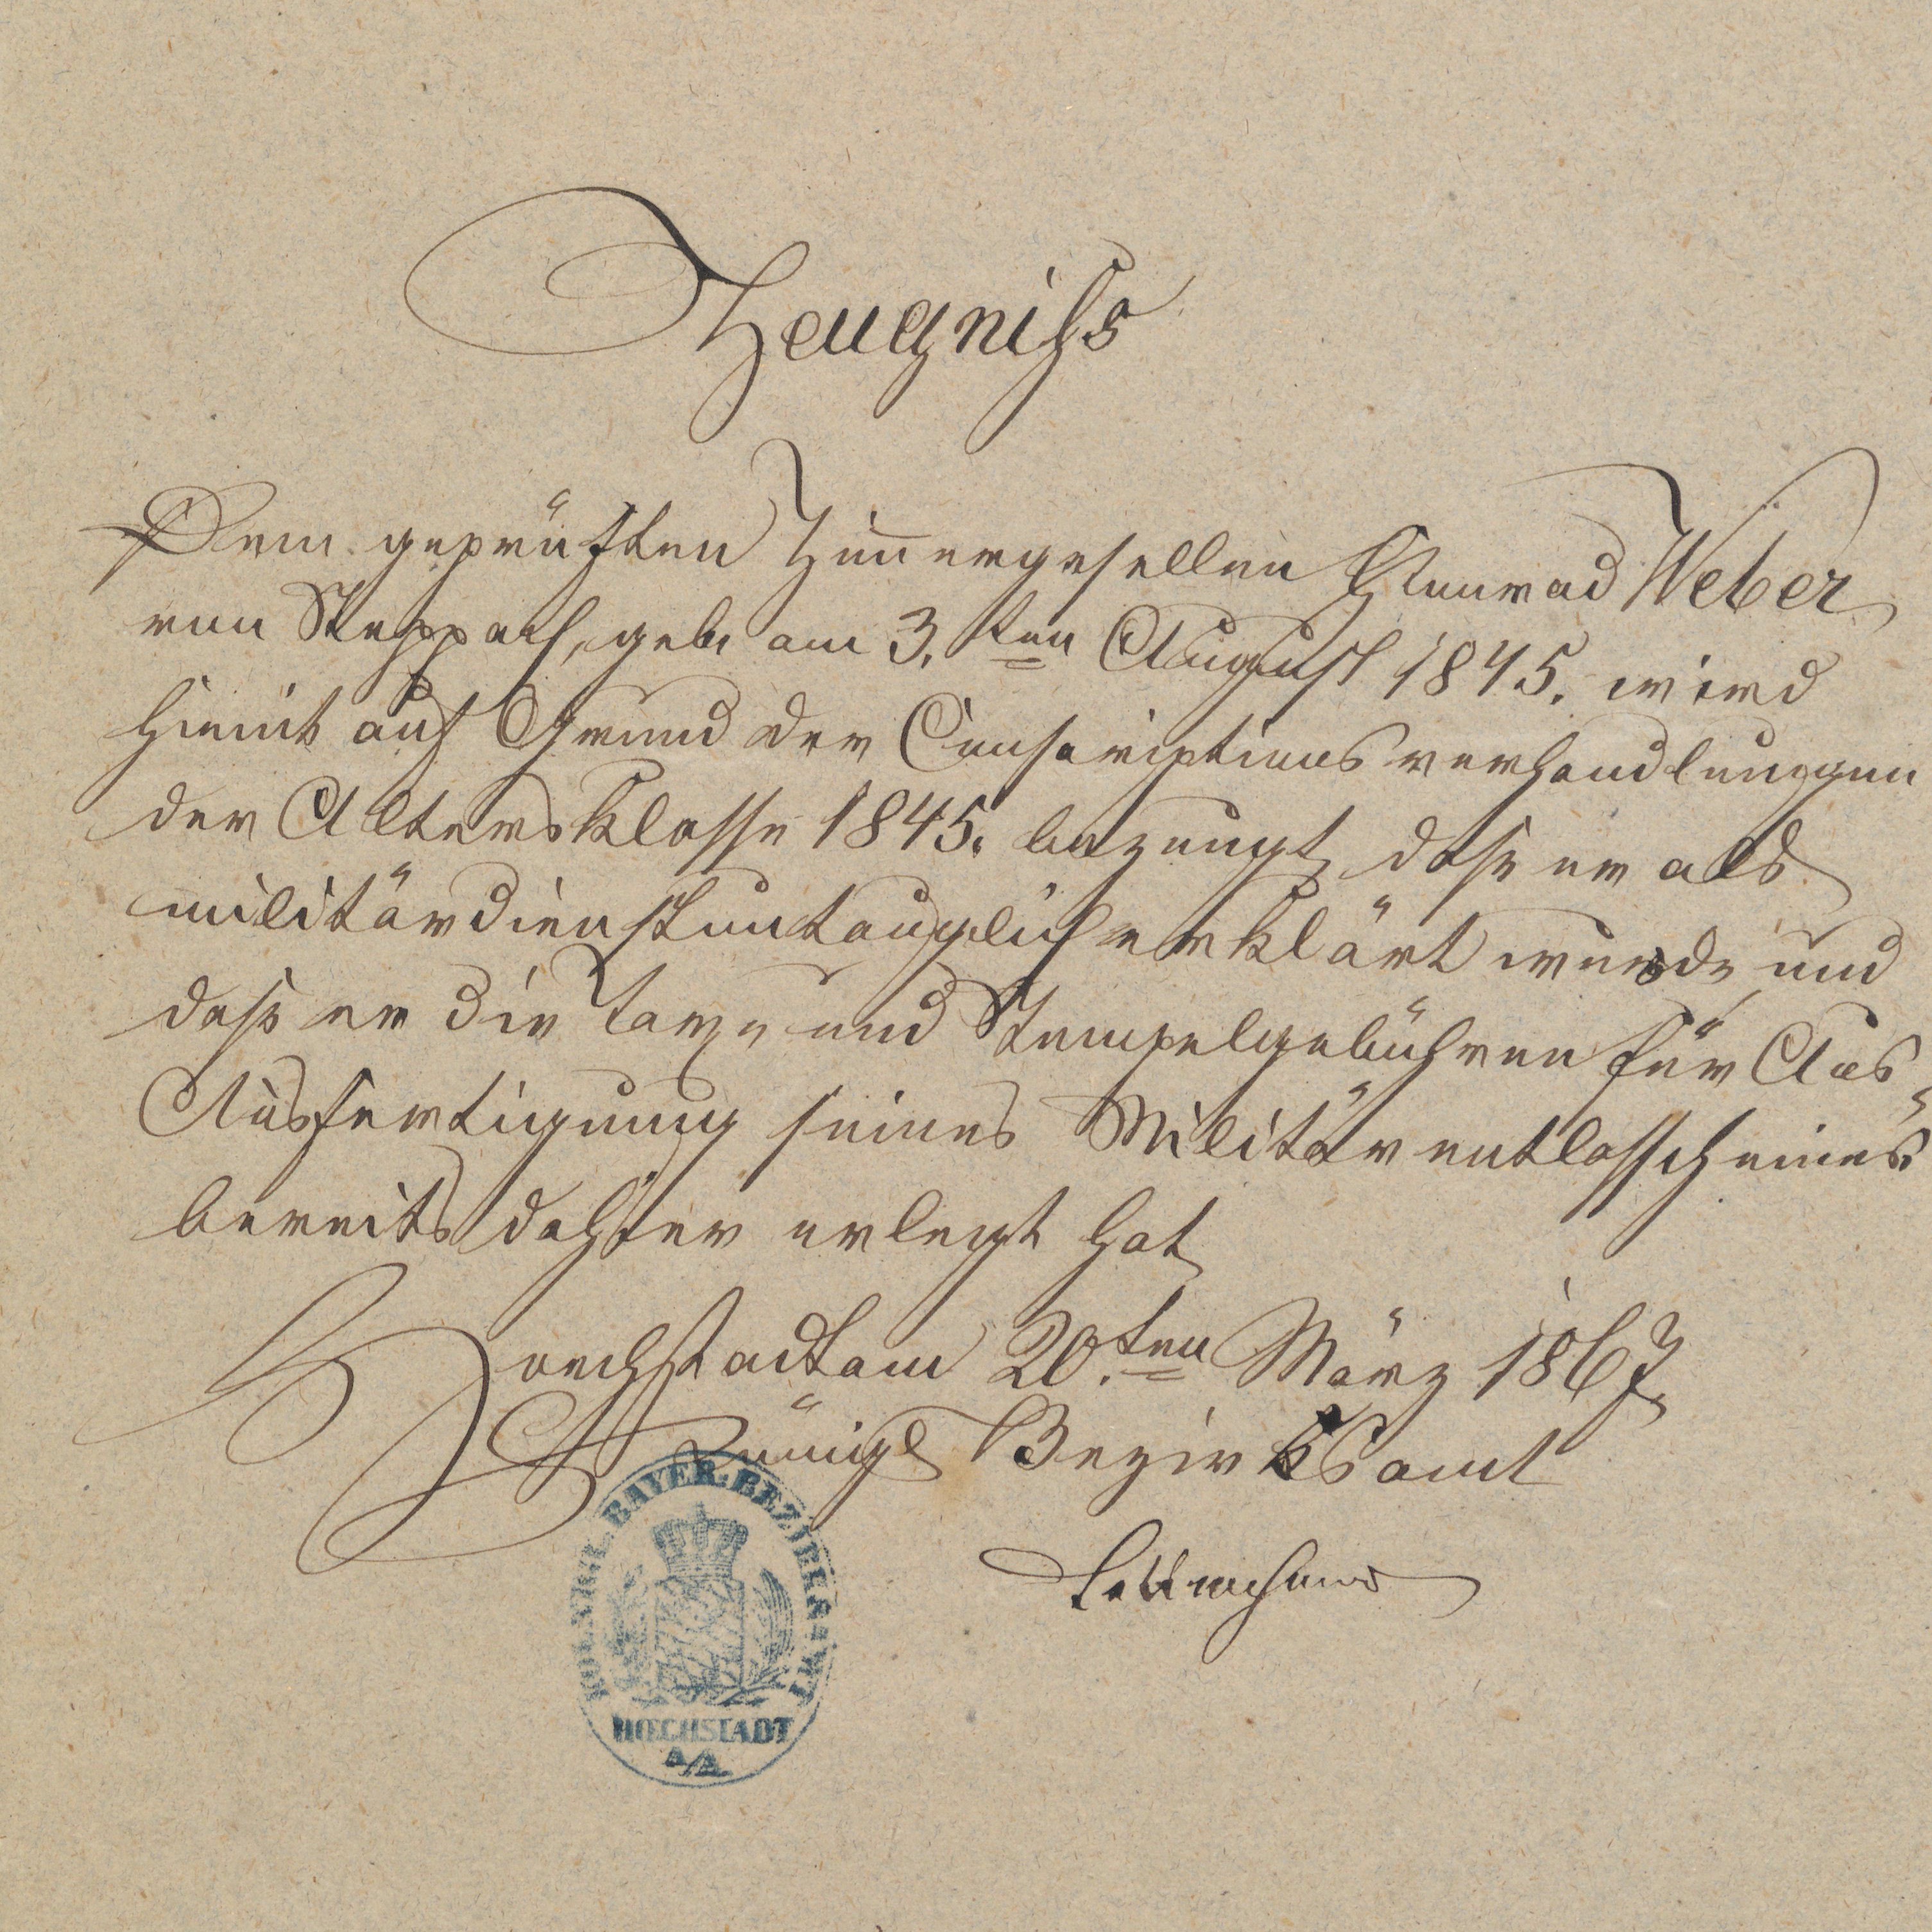 Zeugniss
Dem geprüften Zim̅ergesellen Konrad Weber
von Steppach, geb. am 3.ten August 1845. wird
hiemit auf Grund der Conscriptionsverhandlungen
der Altersklasse 1845. bezeugt, daß er als
militärdienstuntauglich erklärt wurde, und
daß er die Tax- und Stempelgebühren für Aus-
Ausfertigung seines Militärentlaßscheines
bereits dahier erlegt hat
Hoechstadt am 20.ten März 1867
Königl Bezirksamt
KOENIGL. BAYER. BEZIRKSAMT
HOECHSTADT
A/A.